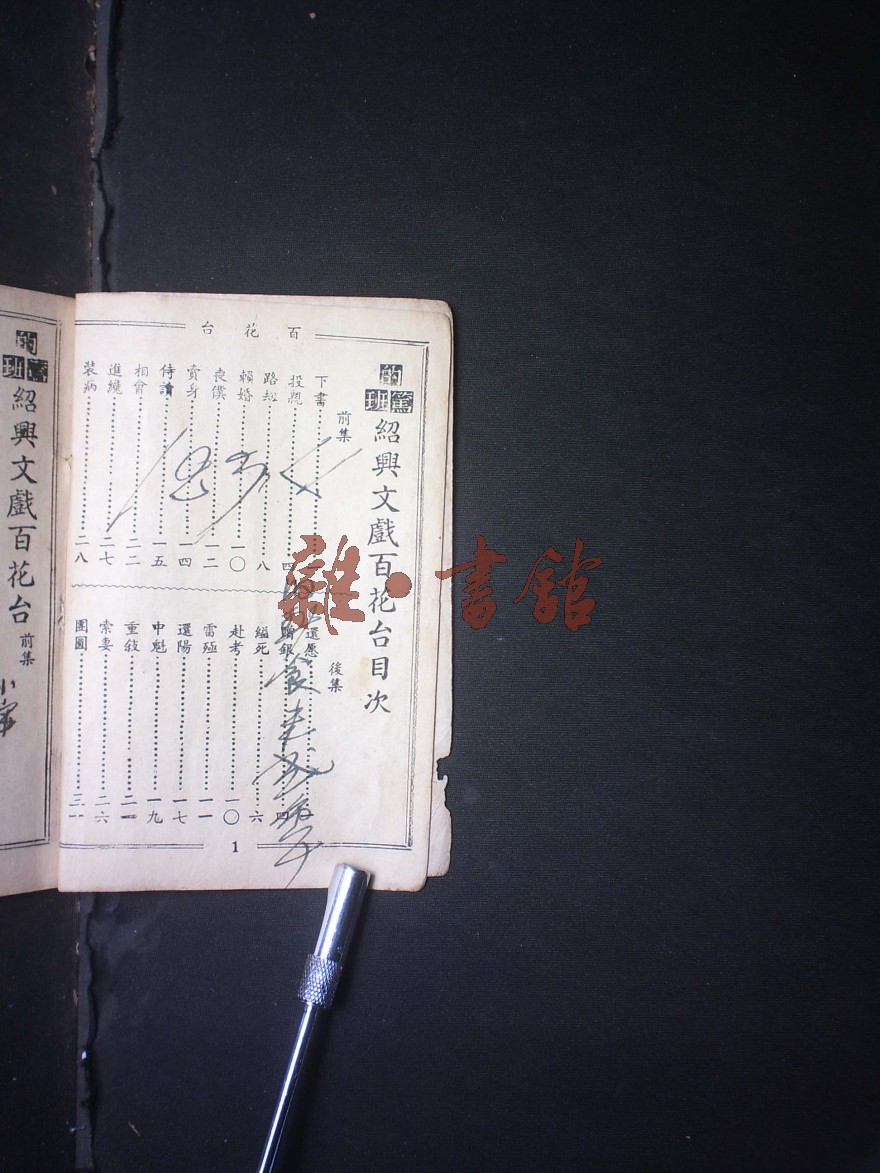 百花台
的篤班
紹興文戲百花台目次
前集
下書……一
投親……四
路刦……八
賴婚……一〇
喪僕……一二
賣身……一四
侍讀……一五
相會……二二
進讒……二七
裝病……二八
後集
還愿
贈銀……四
縊死……六
赴考……一〇
雷殛……一一
還陽……一七
中魁……一九
重敍……二一
索妻……二六
團圓……三一
1
的篤班
紹興文戲百花台
前集
雜·書館